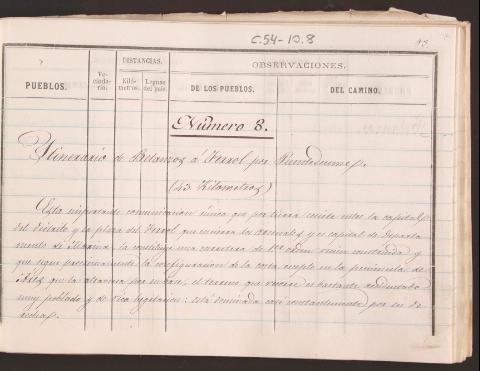 C.54-10.8
PUEBLOS.
Vecindario.
DISTANCIAS.
Kilómetros.
Leguas del país.
OBSERVACIONES.
DE LOS PUEBLOS.
DEL CAMINO.
Número 8.
Itinerario de Betanzos á Ferrol por Puentedeume.
(43 Kilometros)
Esta importante comunicacion única que por tierra existe entre la capital
del distrito y la plaza del Ferrol que encierra los arsenales y es capital de Departa
mento de Marina, la constituye una carretera de 1er orden recien construida y
que sigue proximamente la configuracion de la costa escepto en la peninsula de
Ares que la atraviesa por su base, el terreno que recorre es bastante accidentado
muy poblado y de rica vegetacion: está dominada casi constantemente por su de
recha.